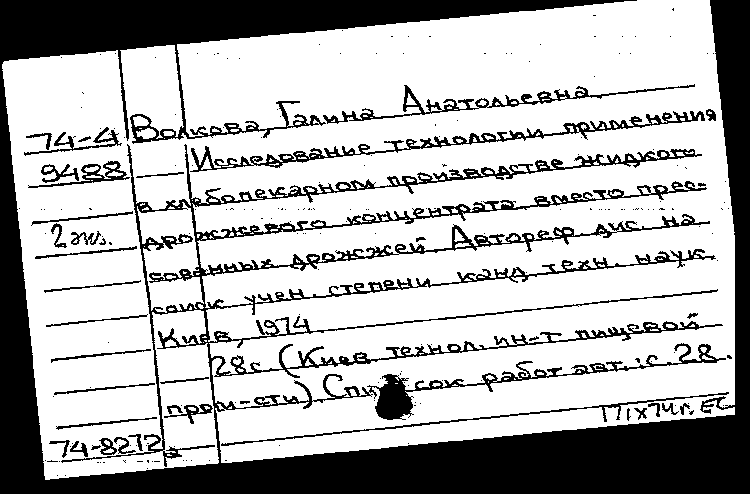 74-4 Волкова, Галина Анатольевна.
9488 Исследование технологии применения
в хлебопекарном производстве жидкого
2 экз. дрожжевого концентрата вместо прес-
сованных дрожжей. Автореф. дис. на
соиск. учен. степени канд. техн. наук.
Киев, 1974.
28с. (Киев. технол. ин-т пищевой
пром-сти). Список работ авт.: с. 28.
74-8272а
17/X74г. ЕС